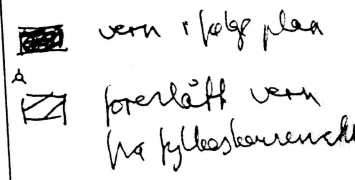 vern ifølge plan
foreslått vern
fra fylkeskonservator